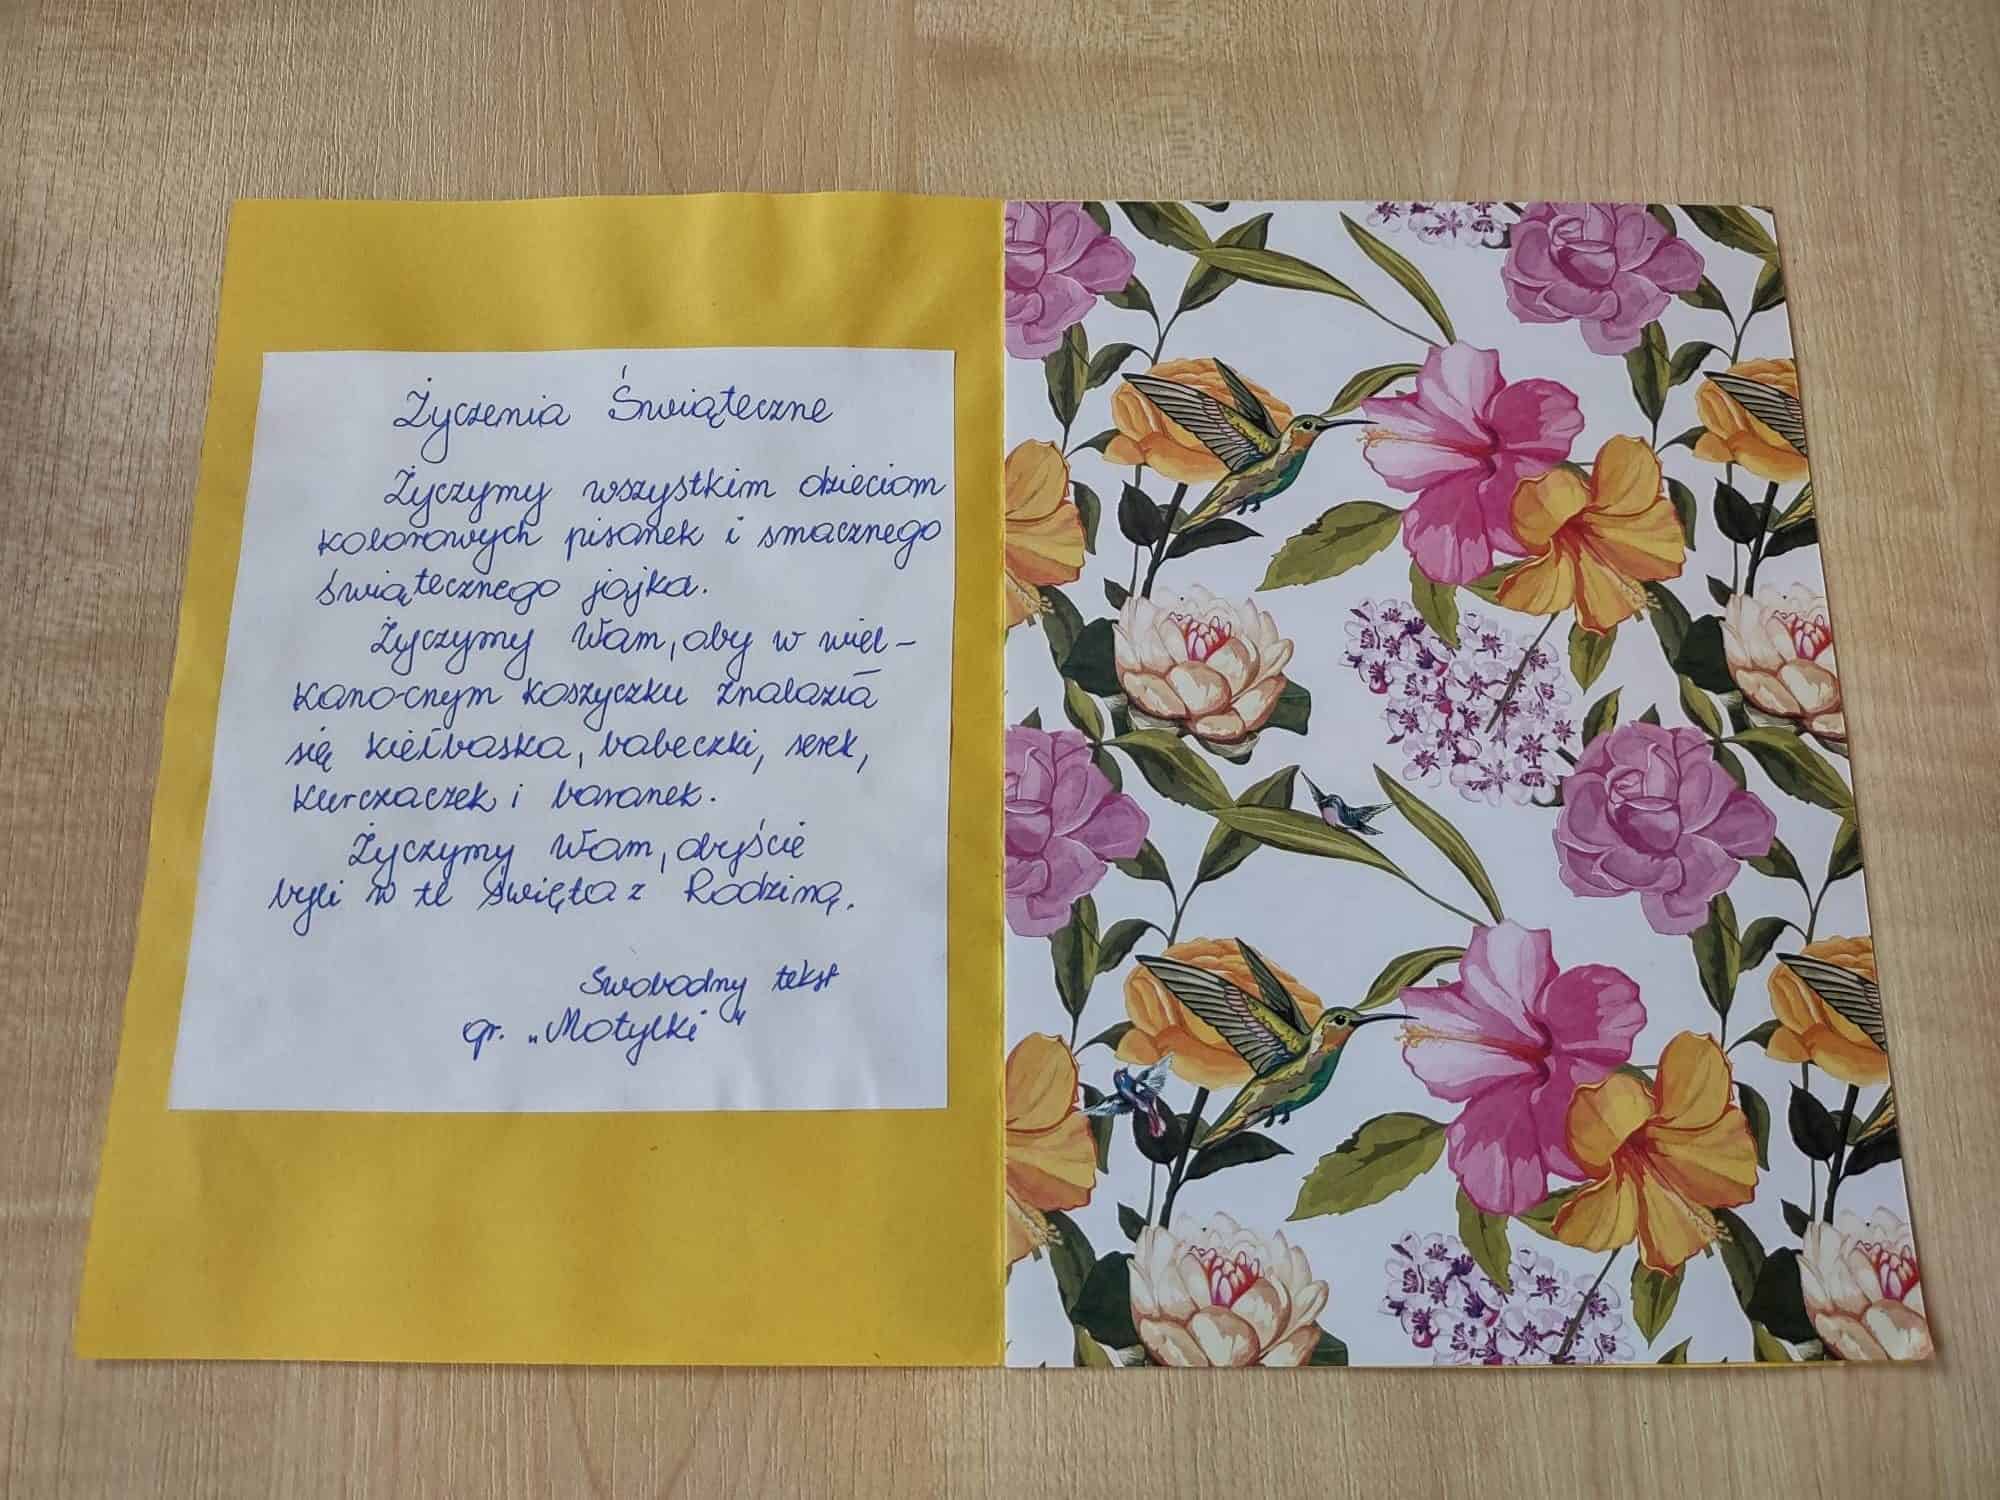 Życzenia Świąteczne
Życzymy wszystkim dzieciom
kolorowych pisanek i smacznego
świątecznego jajka.
Życzymy Wam, aby w wiel-
kanocnym koszyczku znalazła
się kiełbaska, babeczki, serek,
kurczaczek i baranek.
Życzymy Wam, abyście
byli w te święta z Rodziną.
Swobodny tekst
gr. „Motylki"